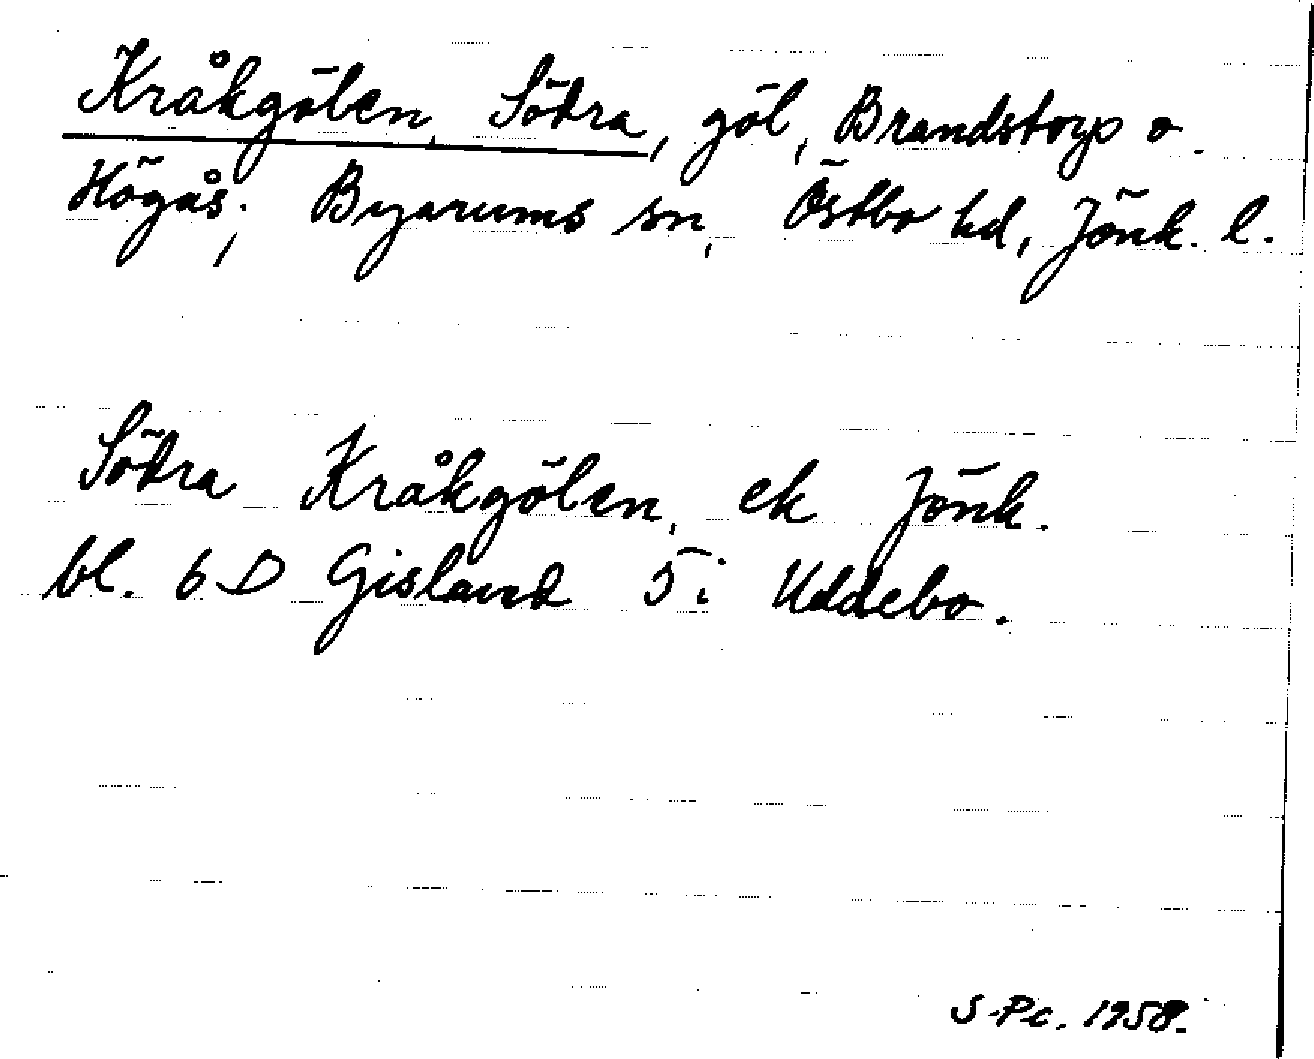 Kråkgölen, Södra, göl, Brandstorp o.
Högås; Byarums sn, Östbo hd, Jönk. l.
Södra Kråkgölen, ek Jönk.
bl. 6 D Gisland 5 i Uddebo.
S-Pc. 1958.